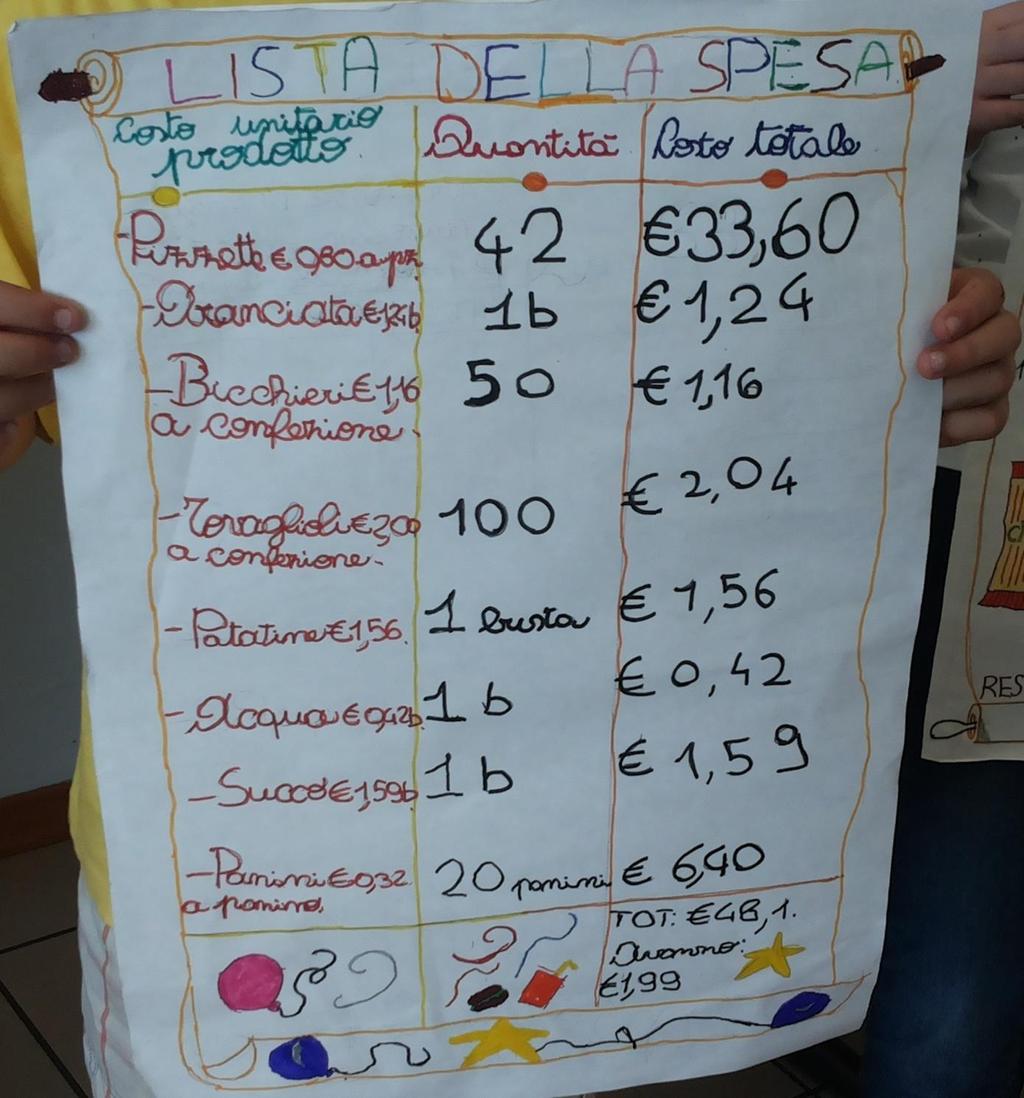 LISTA DELLA SPESA
Costo unitario prodotto. Quantità Costo totale
-Pizzette € 0,80 a pz. 42 €33,60
-Aranciata €1,24b 1b €1,24
-Bicchieri €1,16 50 €1,16
a confezione.
-Tovaglioli € a confezione. 100 € 2,04
-Patatine €1,56. 1 busta € 1,56
-Acqua € 0,42b 1 b € 0,42
-Succo €1,59b 1 b € 1,59
-Panini €0,32 20 panini € 6,40
a panino.
TOT: €48,1.
Avanzo:
€1,99
RES